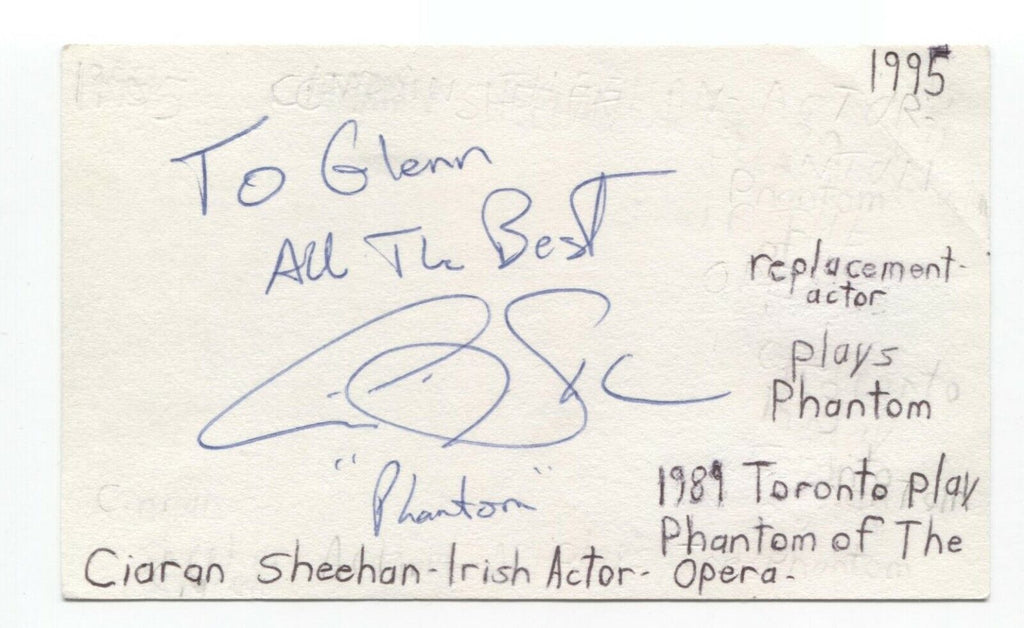 1995
To Glenn
All The Best
"Phantom"
replacement-
actor
plays
Phantom
1989 Toronto play
Phantom of The
Ciaran Sheehan-Irish Actor- Opera-